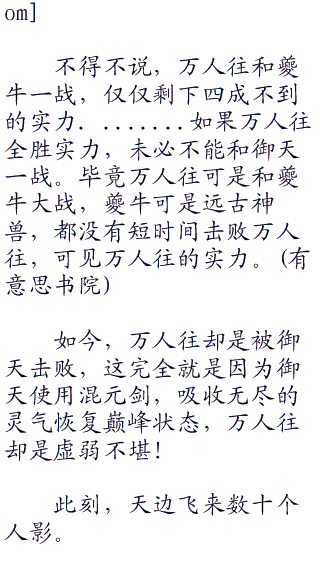 om]
不得不说，万人往和夔
牛一战，仅仅剩下四成不到
的实力．.......如果万人往
全胜实力，未必不能和御天
一战。毕竟万人往可是和夔
牛大战，夔牛可是远古神
兽，都没有短时间击败万人
往，可见万人往的实力。(有
意思书院)
如今，万人往却是被御
天击败，这完全就是因为御
天使用混元剑，吸收无尽的
灵气恢复巅峰状态，万人往
却是虚弱不堪！
此刻，天边飞来数十个
人影。